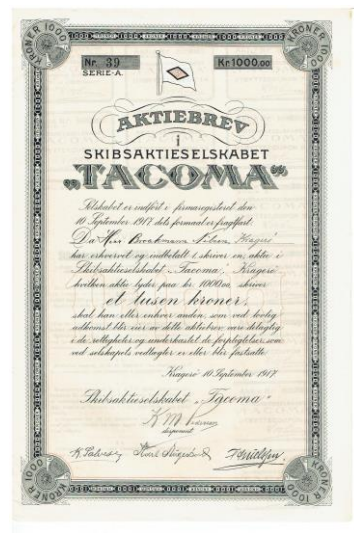 KRONER 1000
KRONER 1000
Nr. 39
SERIE-A.
Kr 1000,00
AKTIEBREV
i
SKIBSAKTIESELSKABET
„TACOMA”
Selskabet er indført i firmaregisteret den
10 September 1917 dets formaal er fragtfart.
Da Herr Brockmann Nilsen Kragerø
har erhvervet og indbetalt 1 skriver en, aktie i
Skibsaktieselskabet „Tacoma”, Kragerø
hvilken aktie lyder paa kr. 1000.00 skriver
et tusen kroner,
skal han eller enhver anden, som ved lovlig
adkomst blir eier av dette aktiebrev, være delagtig
i de rettigheter og underkastet de forpligtelser, som
ved selskapets vedtægter er eller blir fastsatte
Kragerø 10 September 1917.
Skibsaktieselskabet „Tacoma”
K M
disponent
KRONER 1000
KRONER 1000